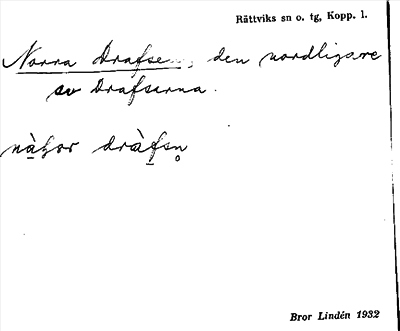 Rättviks sn o. tg, Kopp. l.
Norra Drafsen, den nordligare
av Drafsarna.
Bror Lindén 1932